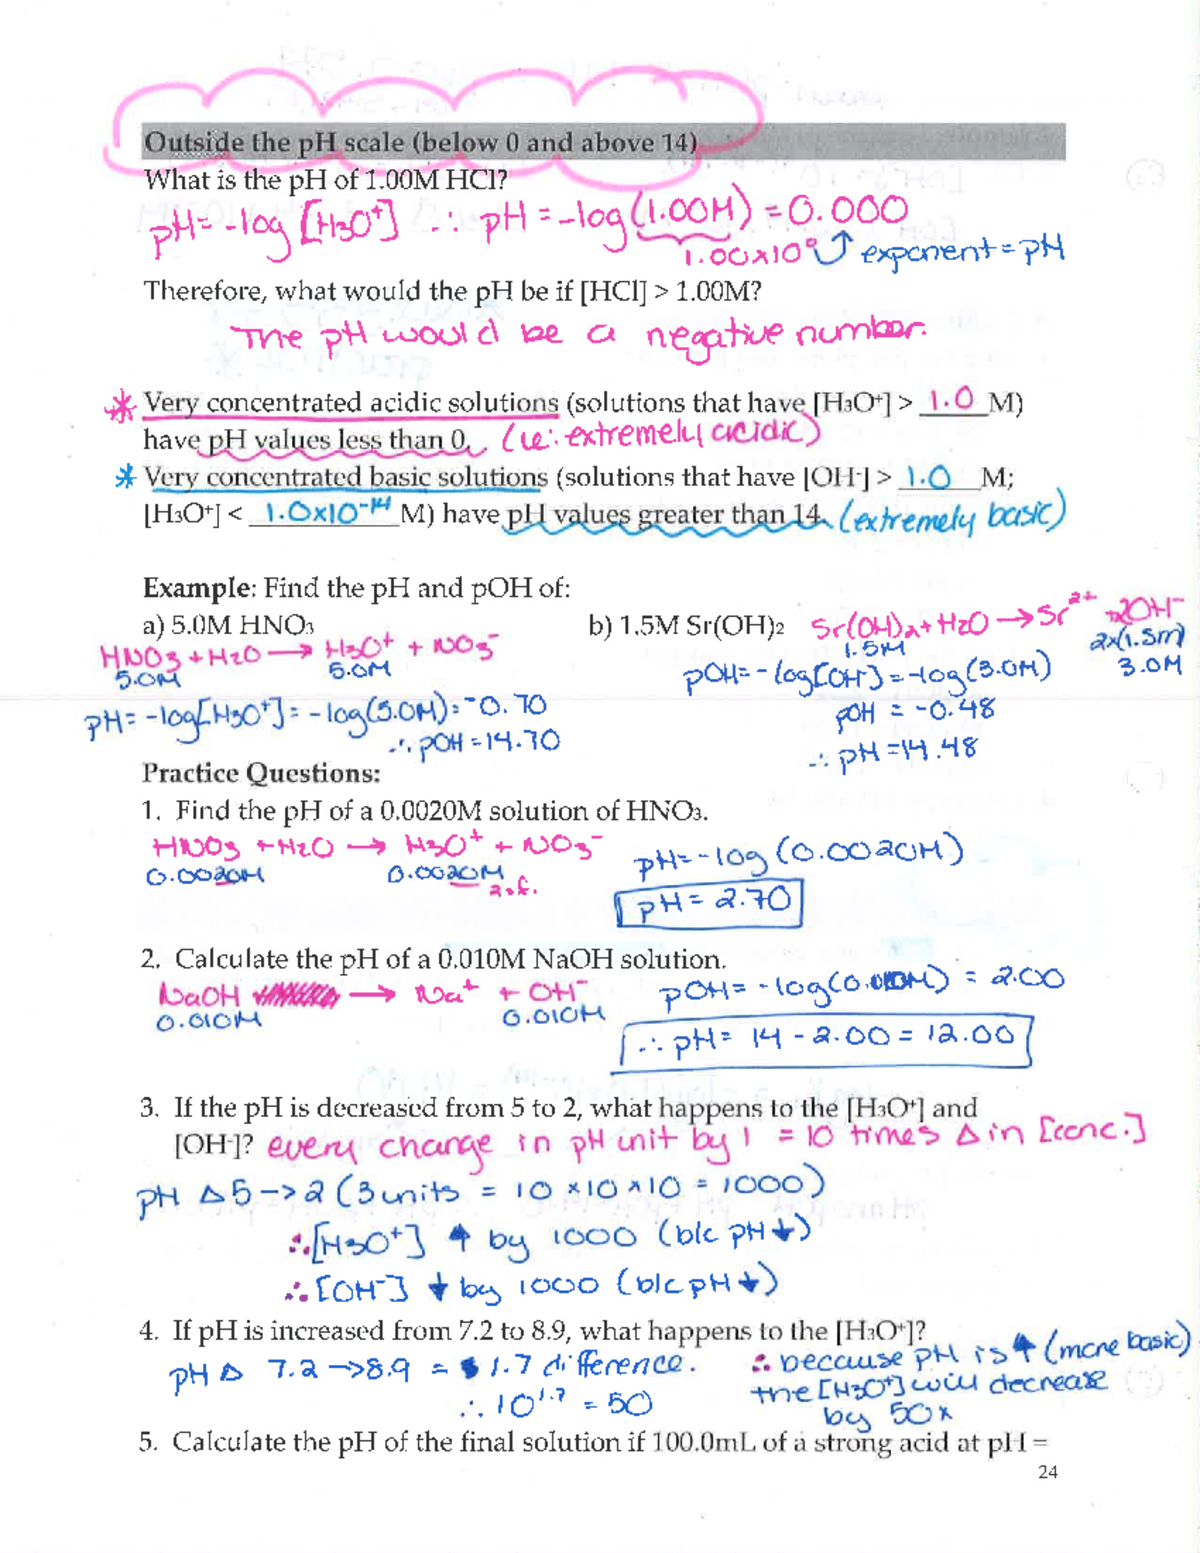 Outside the pH scale (below 0 and above 14)
What is the pH of 1.00M HCl?
pH = -log [H3O+] ∴ pH = -log(1.00M) = 0.000
1.00x10⁰ ↑ exponent = pH
Therefore, what would the pH be if [HCl] > 1.00M?
The pH would be a negative number.
* Very concentrated acidic solutions (solutions that have [H₃O⁺] > 1.0 M)
have pH values less than 0. (ie: extremely acidic)
* Very concentrated basic solutions (solutions that have [OH-] > 1.0 M;
[H₃O⁺] < 1.0x10⁻¹⁴ M) have pH values greater than 14. (extremely basic)
Example: Find the pH and pOH of:
a) 5.0M HNO₃
HNO3 + H2O → H3O+ + NO3-
5.0M 5.0M
pH = -log[H3O+] = -log(5.0M) = -0.70
∴ pOH = 14.70
b) 1.5M Sr(OH)₂ Sr(OH)2 + H2O → Sr²⁺ + 2OH-
1.5M 2x(1.5M)
pOH = -log[OH-] = -log(3.0M) 3.0M
pOH = -0.48
∴ pH = 14.48
Practice Questions:
1. Find the pH of a 0.0020M solution of HNO₃.
HNO3 + H2O → H3O+ + NO3- pH = -log (0.0020M)
0.0020M 0.0020M
2 s.f. pH = 2.70
2. Calculate the pH of a 0.010M NaOH solution.
NaOH → Na+ + OH- pOH = -log(0.010M) = 2.00
0.010M 0.010M
∴ pH = 14 - 2.00 = 12.00
3. If the pH is decreased from 5 to 2, what happens to the [H₃O⁺] and
[OH-]? every change in pH unit by 1 = 10 times Δ in [conc.]
pH Δ 5 -> 2 (3 units = 10 x 10 x 10 = 1000)
∴ [H3O+] ↑ by 1000 (b/c pH ↓)
∴ [OH-] ↓ by 1000 (b/c pH ↓)
4. If pH is increased from 7.2 to 8.9, what happens to the [H₃O⁺]?
pH Δ 7.2 -> 8.9 = 1.7 difference.
∴ 10¹·⁷ = 50
∴ because pH is ↑ (more basic)
the [H3O+] will decrease
by 50x
5. Calculate the pH of the final solution if 100.0mL of a strong acid at pH =
24